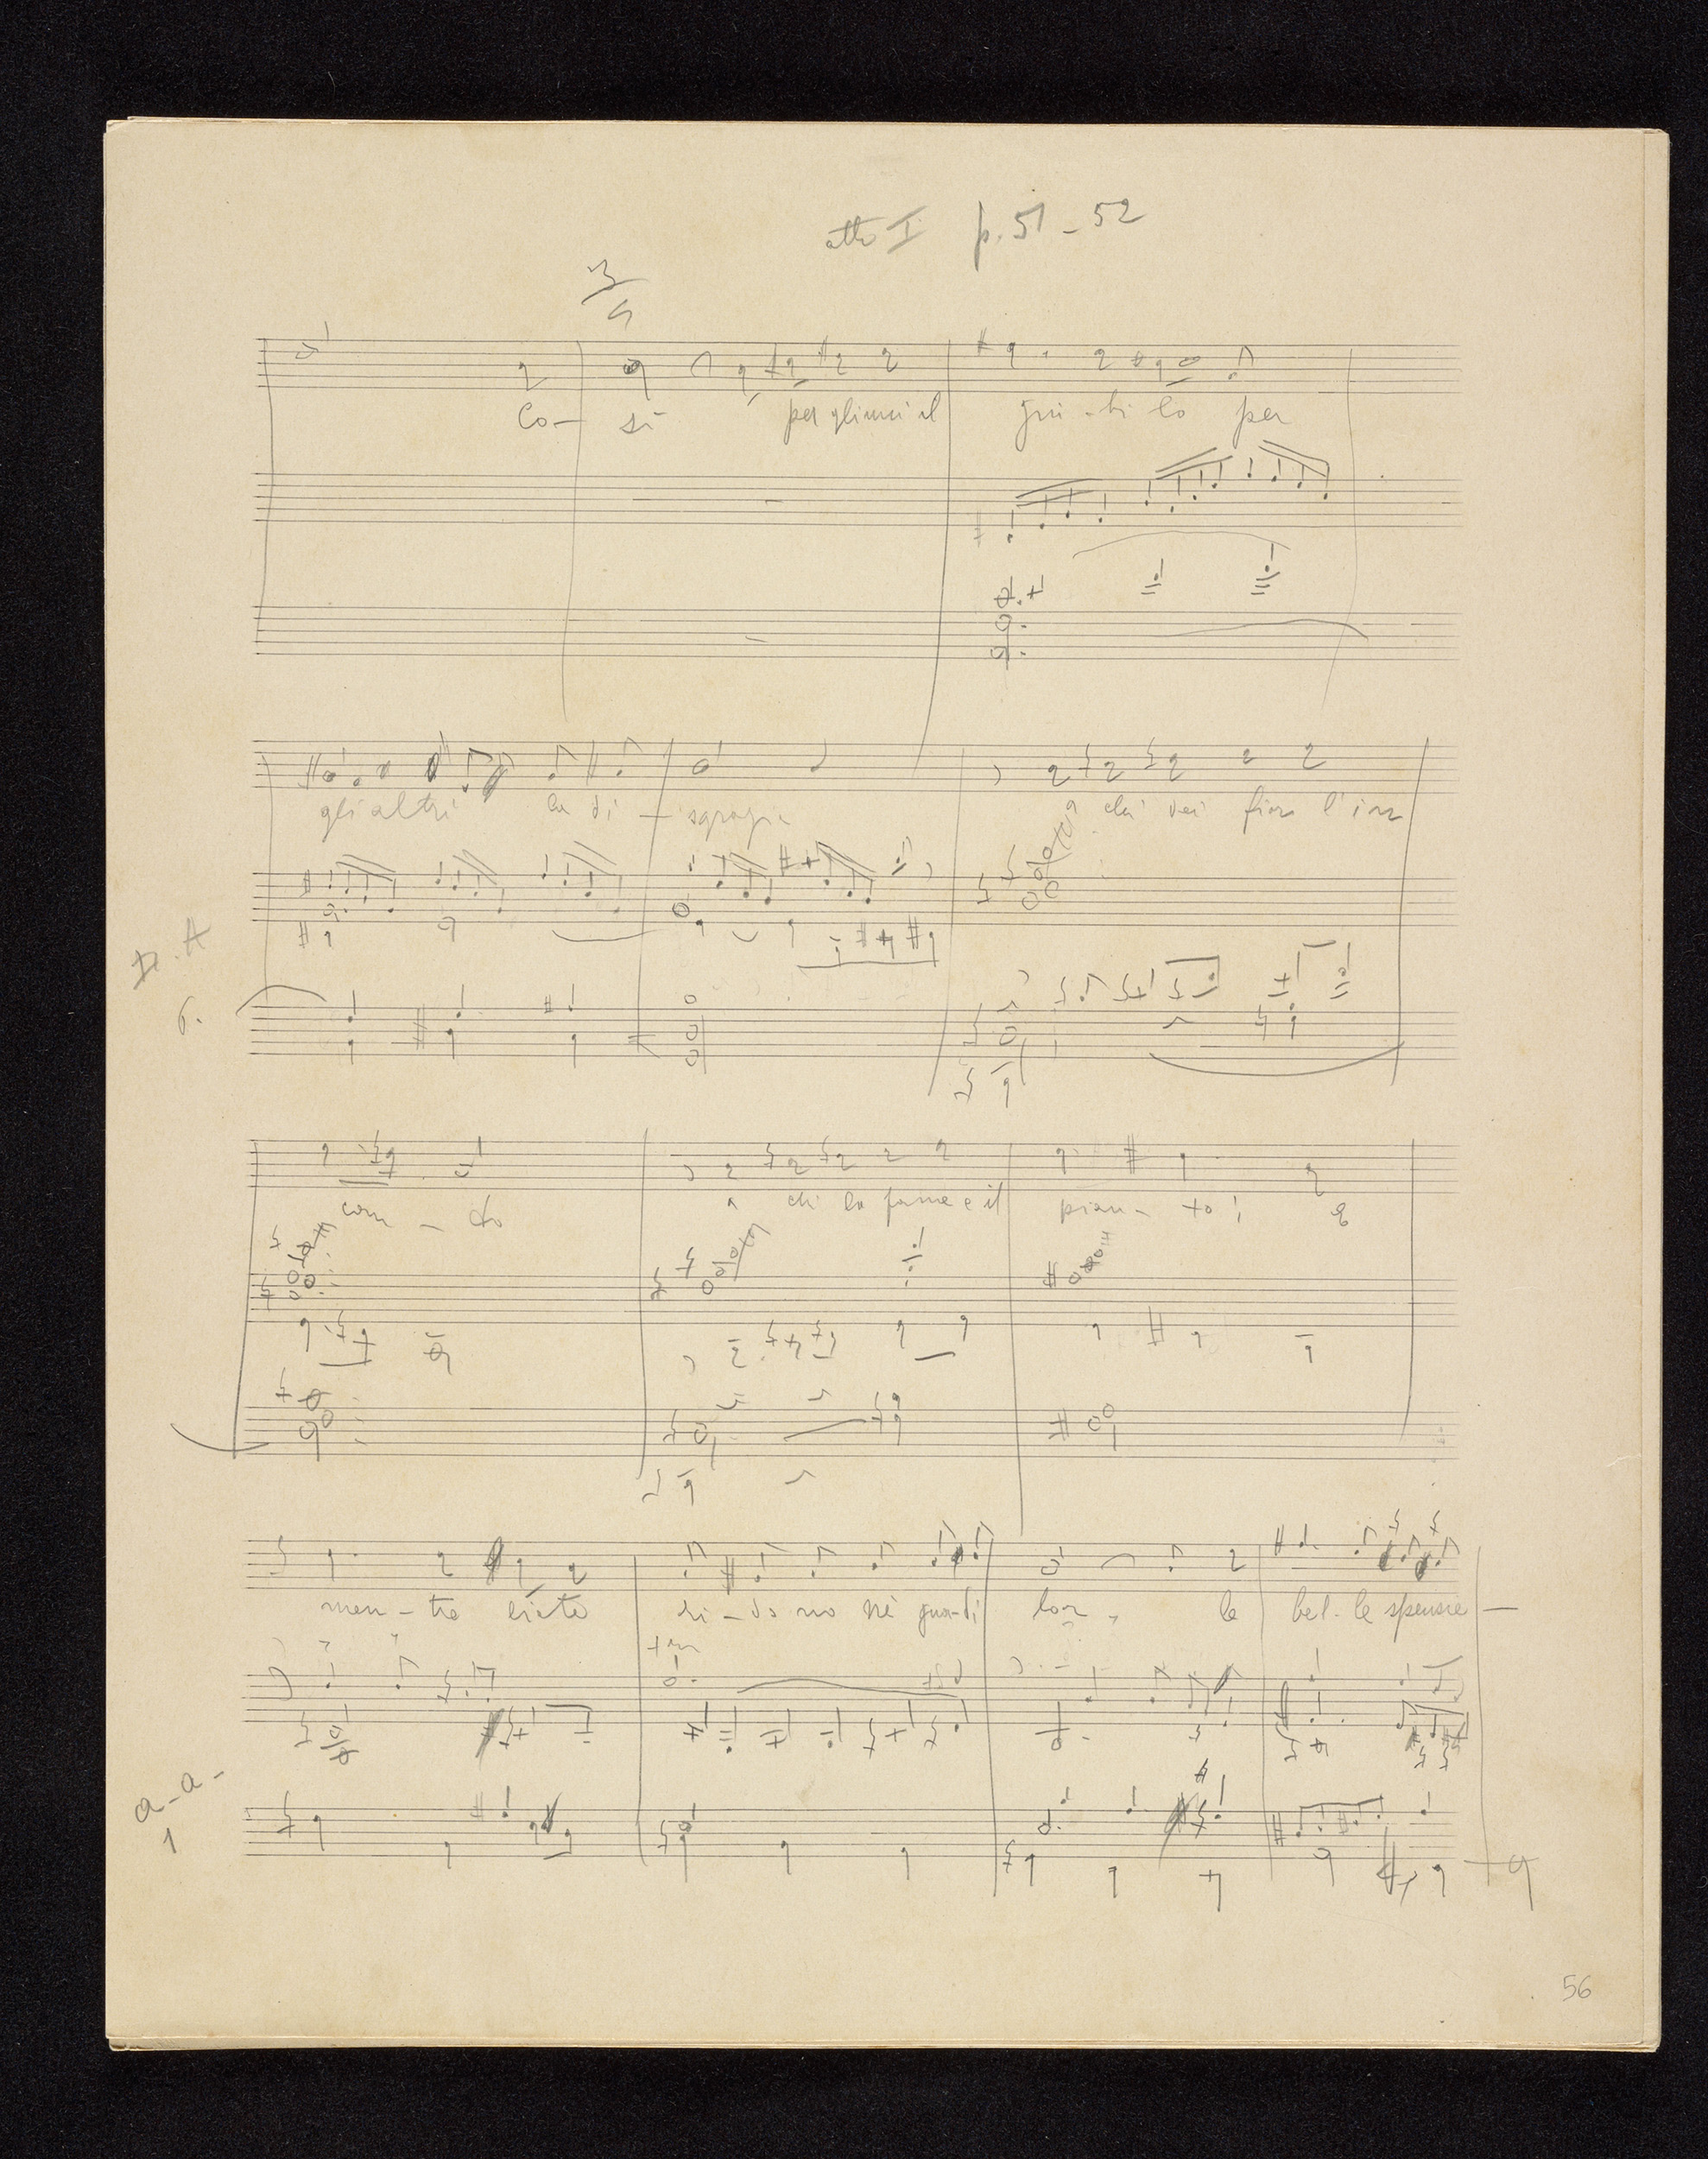 atto I p. 51 - 52
3/4
Co- sì per gli uni il giu - bi lo per
gli altri la di - sgrazia a chi dei fior l'in
D. A
6.
can - to a chi la fame e il pian - to! e
men - tre liete ri - do no nè guardi lor, le bel - le spensie -
a - a -
1
56